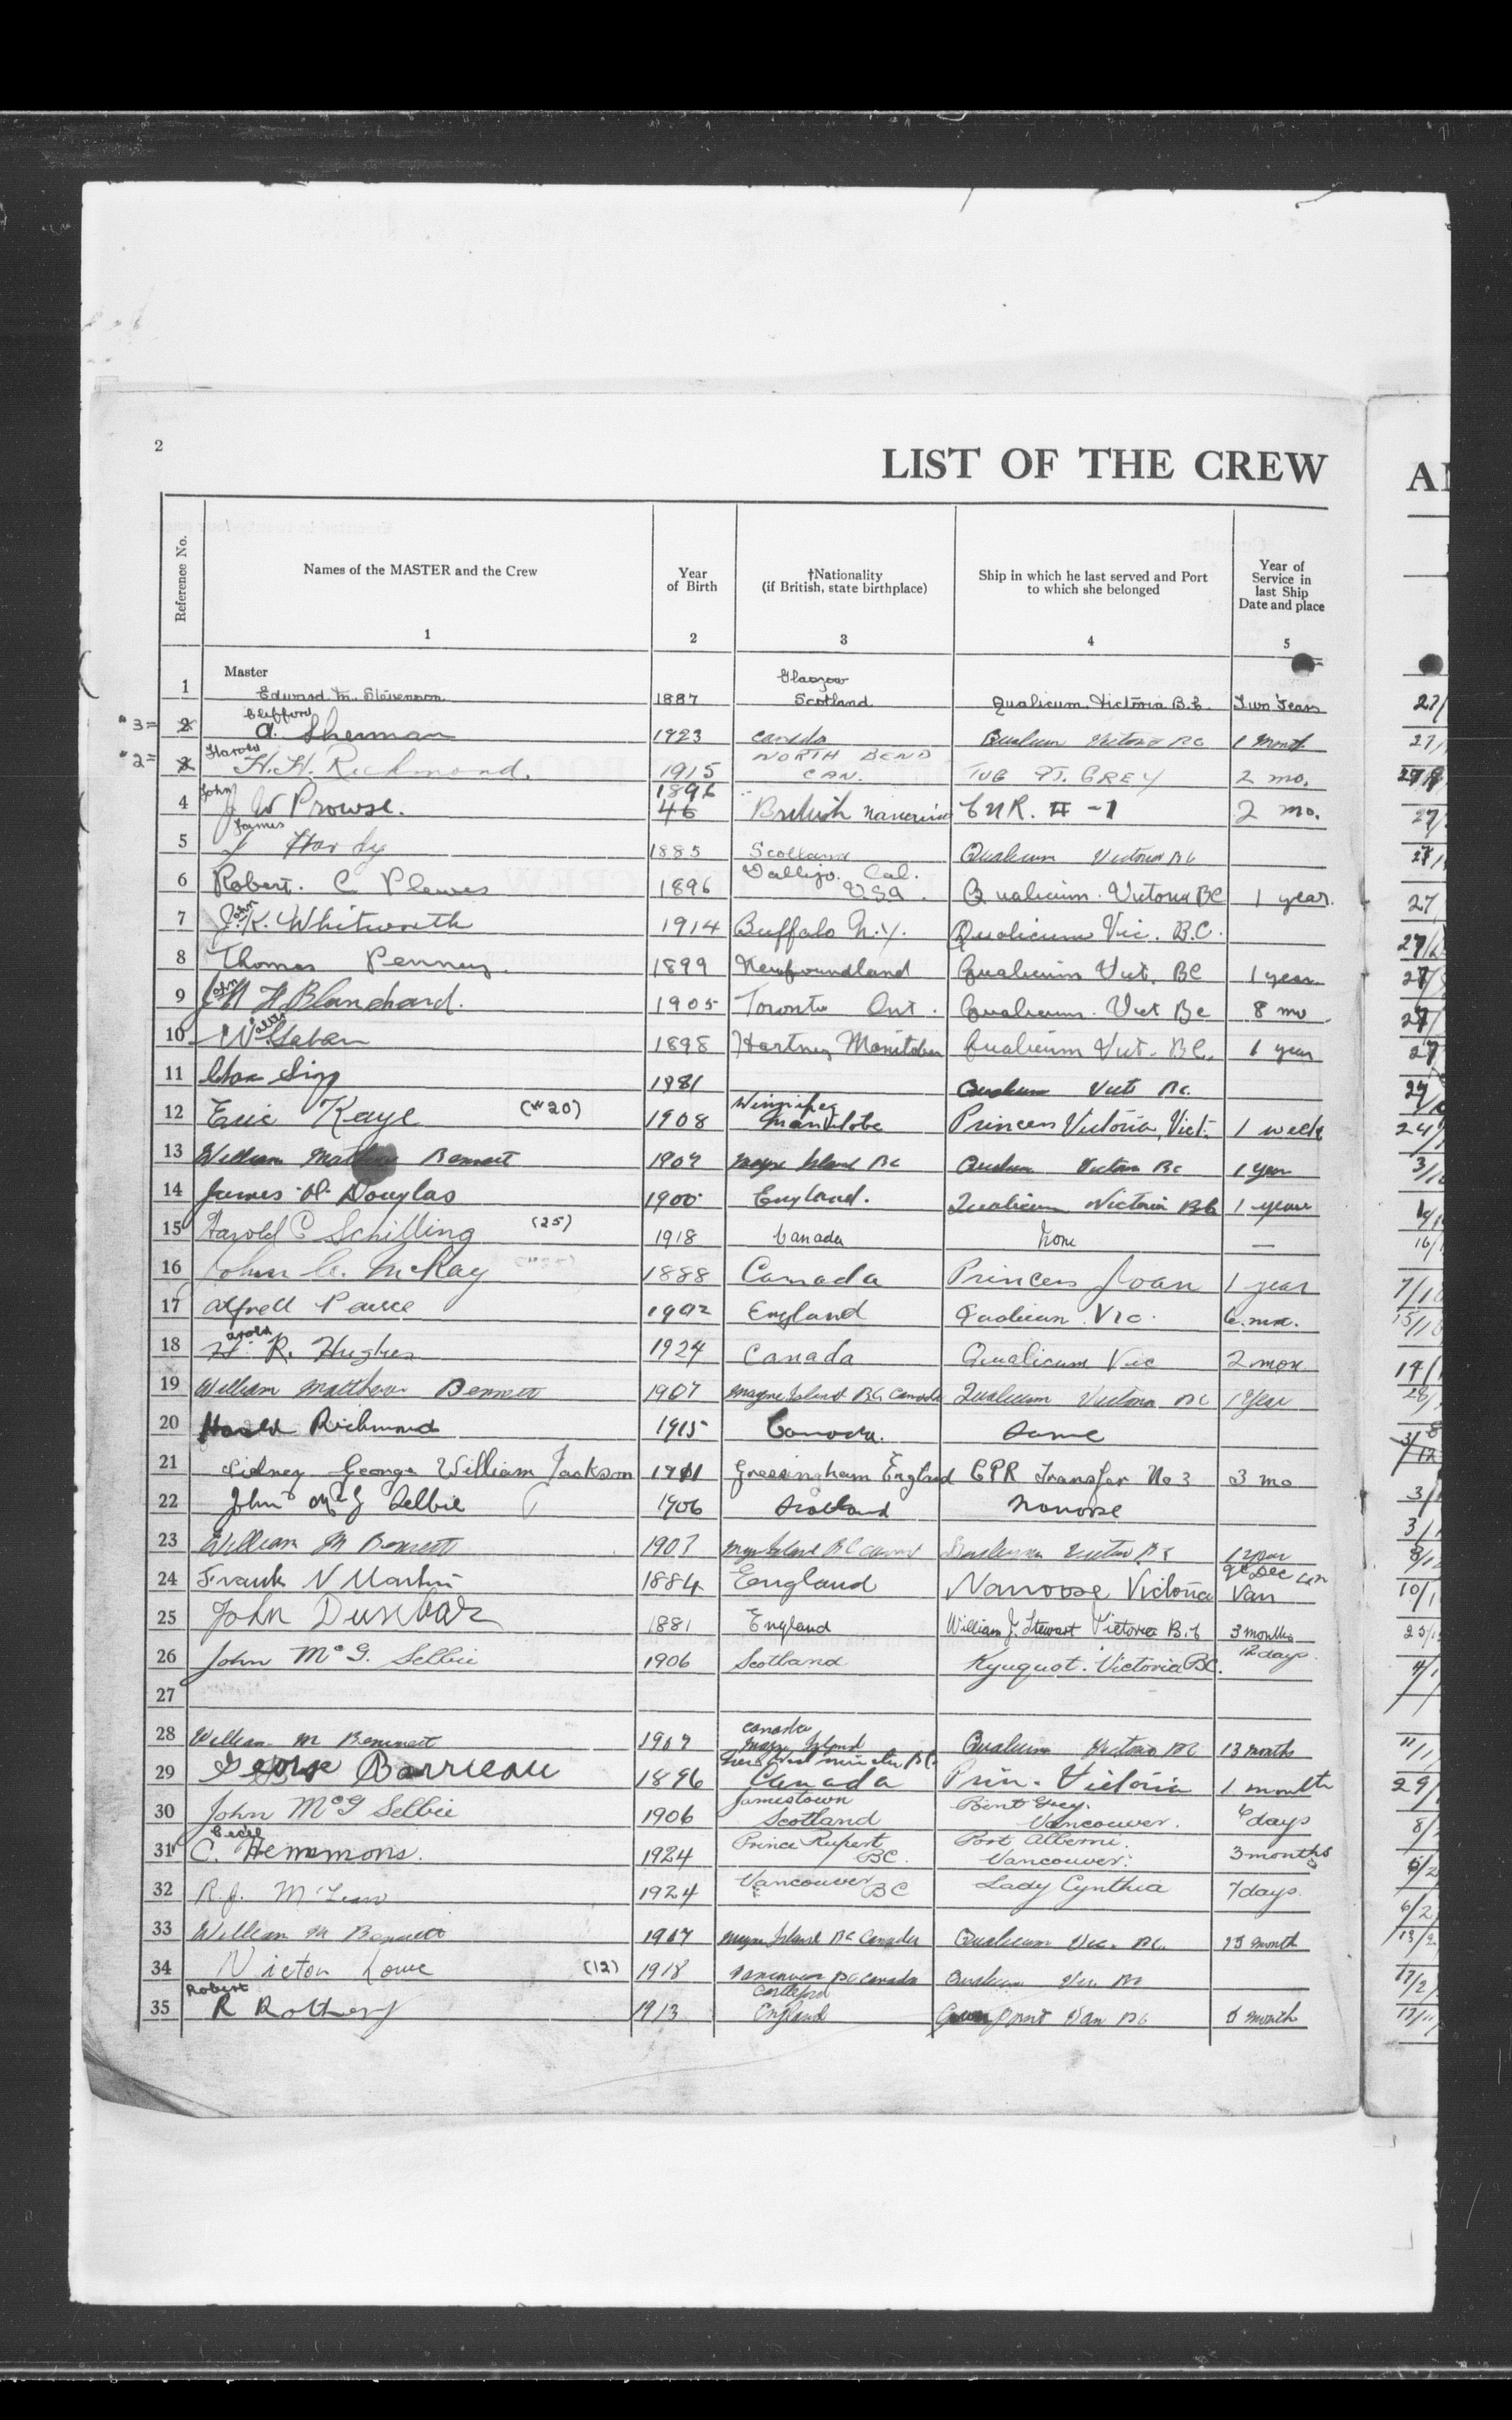 2
LIST OF THE CREW
Reference No.
Names of the MASTER and the Crew
Year of Birth
†Nationality (if British, state birthplace)
Ship in which he last served and Port to which she belonged
Year of Service in last Ship Date and place
1 2 3 4 5
1 Master Edward M. Stevenson 1887 Glasgow Scotland Qualicum. Victoria B.C. Two Years
"3= 2 Clifford A. Sherman 1923 Canada Qualicum Victoria BC 1 Month
"2= 3 Harold H.H. Richmond. 1915 NORTH BEND CAN. TUG PT. GREY 2 mo.
4 John J W Prowse. 1896 46 British CNR. # -1 2 mo.
5 James J Hardy 1885 Scotland Qualicum Victoria BC
6 Robert. C Plewes 1896 Vallijo. Cal. USA. Qualicum. Victoria BC 1 year.
7 John J.K. Whitworth 1914 Buffalo N.Y. Qualicum Vic. B.C.
8 Thomas Penney. 1899 Newfoundland Qualicum Vict. BC 1 year
9 John H Blanchard. 1905 Toronto Ont. Qualicum. Vict Bc 8 mo.
10 Walter 1898 Hartney Manitoba Qualicum Vict. BC. 1 year
11 Sing 1881 Qualicum Vict BC.
12 Eric Kaye (#20) 1908 Winnipeg Manitoba Princess Victoria, Vict. 1 week
13 William Matthew Bennett 1907 Mayne Island BC Qualicum Victoria BC 1 year
14 James Douglas 1900 England. Qualicum Victoria BC 1 year
15 Harold C Schilling (25) 1918 Canada None —
16 John C. McKay 1888 Canada Princess Joan 1 year
17 Alfred Pearce 1902 England Qualicum. Vic. 6. mos.
18 Harold H. R. Hughes 1924 Canada Qualicum Vic 2 mos
19 William Matthew Bennett 1907 Mayne Island BC Canada Qualicum Victoria BC 1 Year
20 Harold Richmond 1915 Canada. Same
21 Sidney George William Jackson 1911 Gressingham England CPR Transfer No 3 3 mo
22 John McG Selbie 1906 Scotland Nanoose
23 William M Bennett 1907 Mayne Island BC Canada Qualicum Victoria BC 1 year
24 Frank N Martin 1884 England Nanoose Victoria Dec Van
25 John Dunbar 1881 England William J. Stewart Victoria B.C 3 months
26 John McG. Selbie 1906 Scotland Kyuquot. Victoria BC. 12 days.
27
28 William M Bennett 1907 Canada Mayne Island Qualicum Victoria BC 13 months
29 George Barrieau 1896 New Westminster B.C. Canada Prin. Victoria 1 month
30 John McG Selbie 1906 Jamestown Scotland Point Grey. Vancouver. 6 days
31 Cecil C. Hemmons. 1924 Prince Rupert BC. Port Alberni. Vancouver. 3 months
32 R.J. McLean 1924 Vancouver BC Lady Cynthia 7 days.
33 William M Bennett 1907 Mayne Island BC Canada Qualicum Vic. BC. month
34 Victor Lowe (12) 1918 Vancouver BC Canada Qualicum Vic BC
35 Robert R Rothery 1913 Castleford England Van BC month